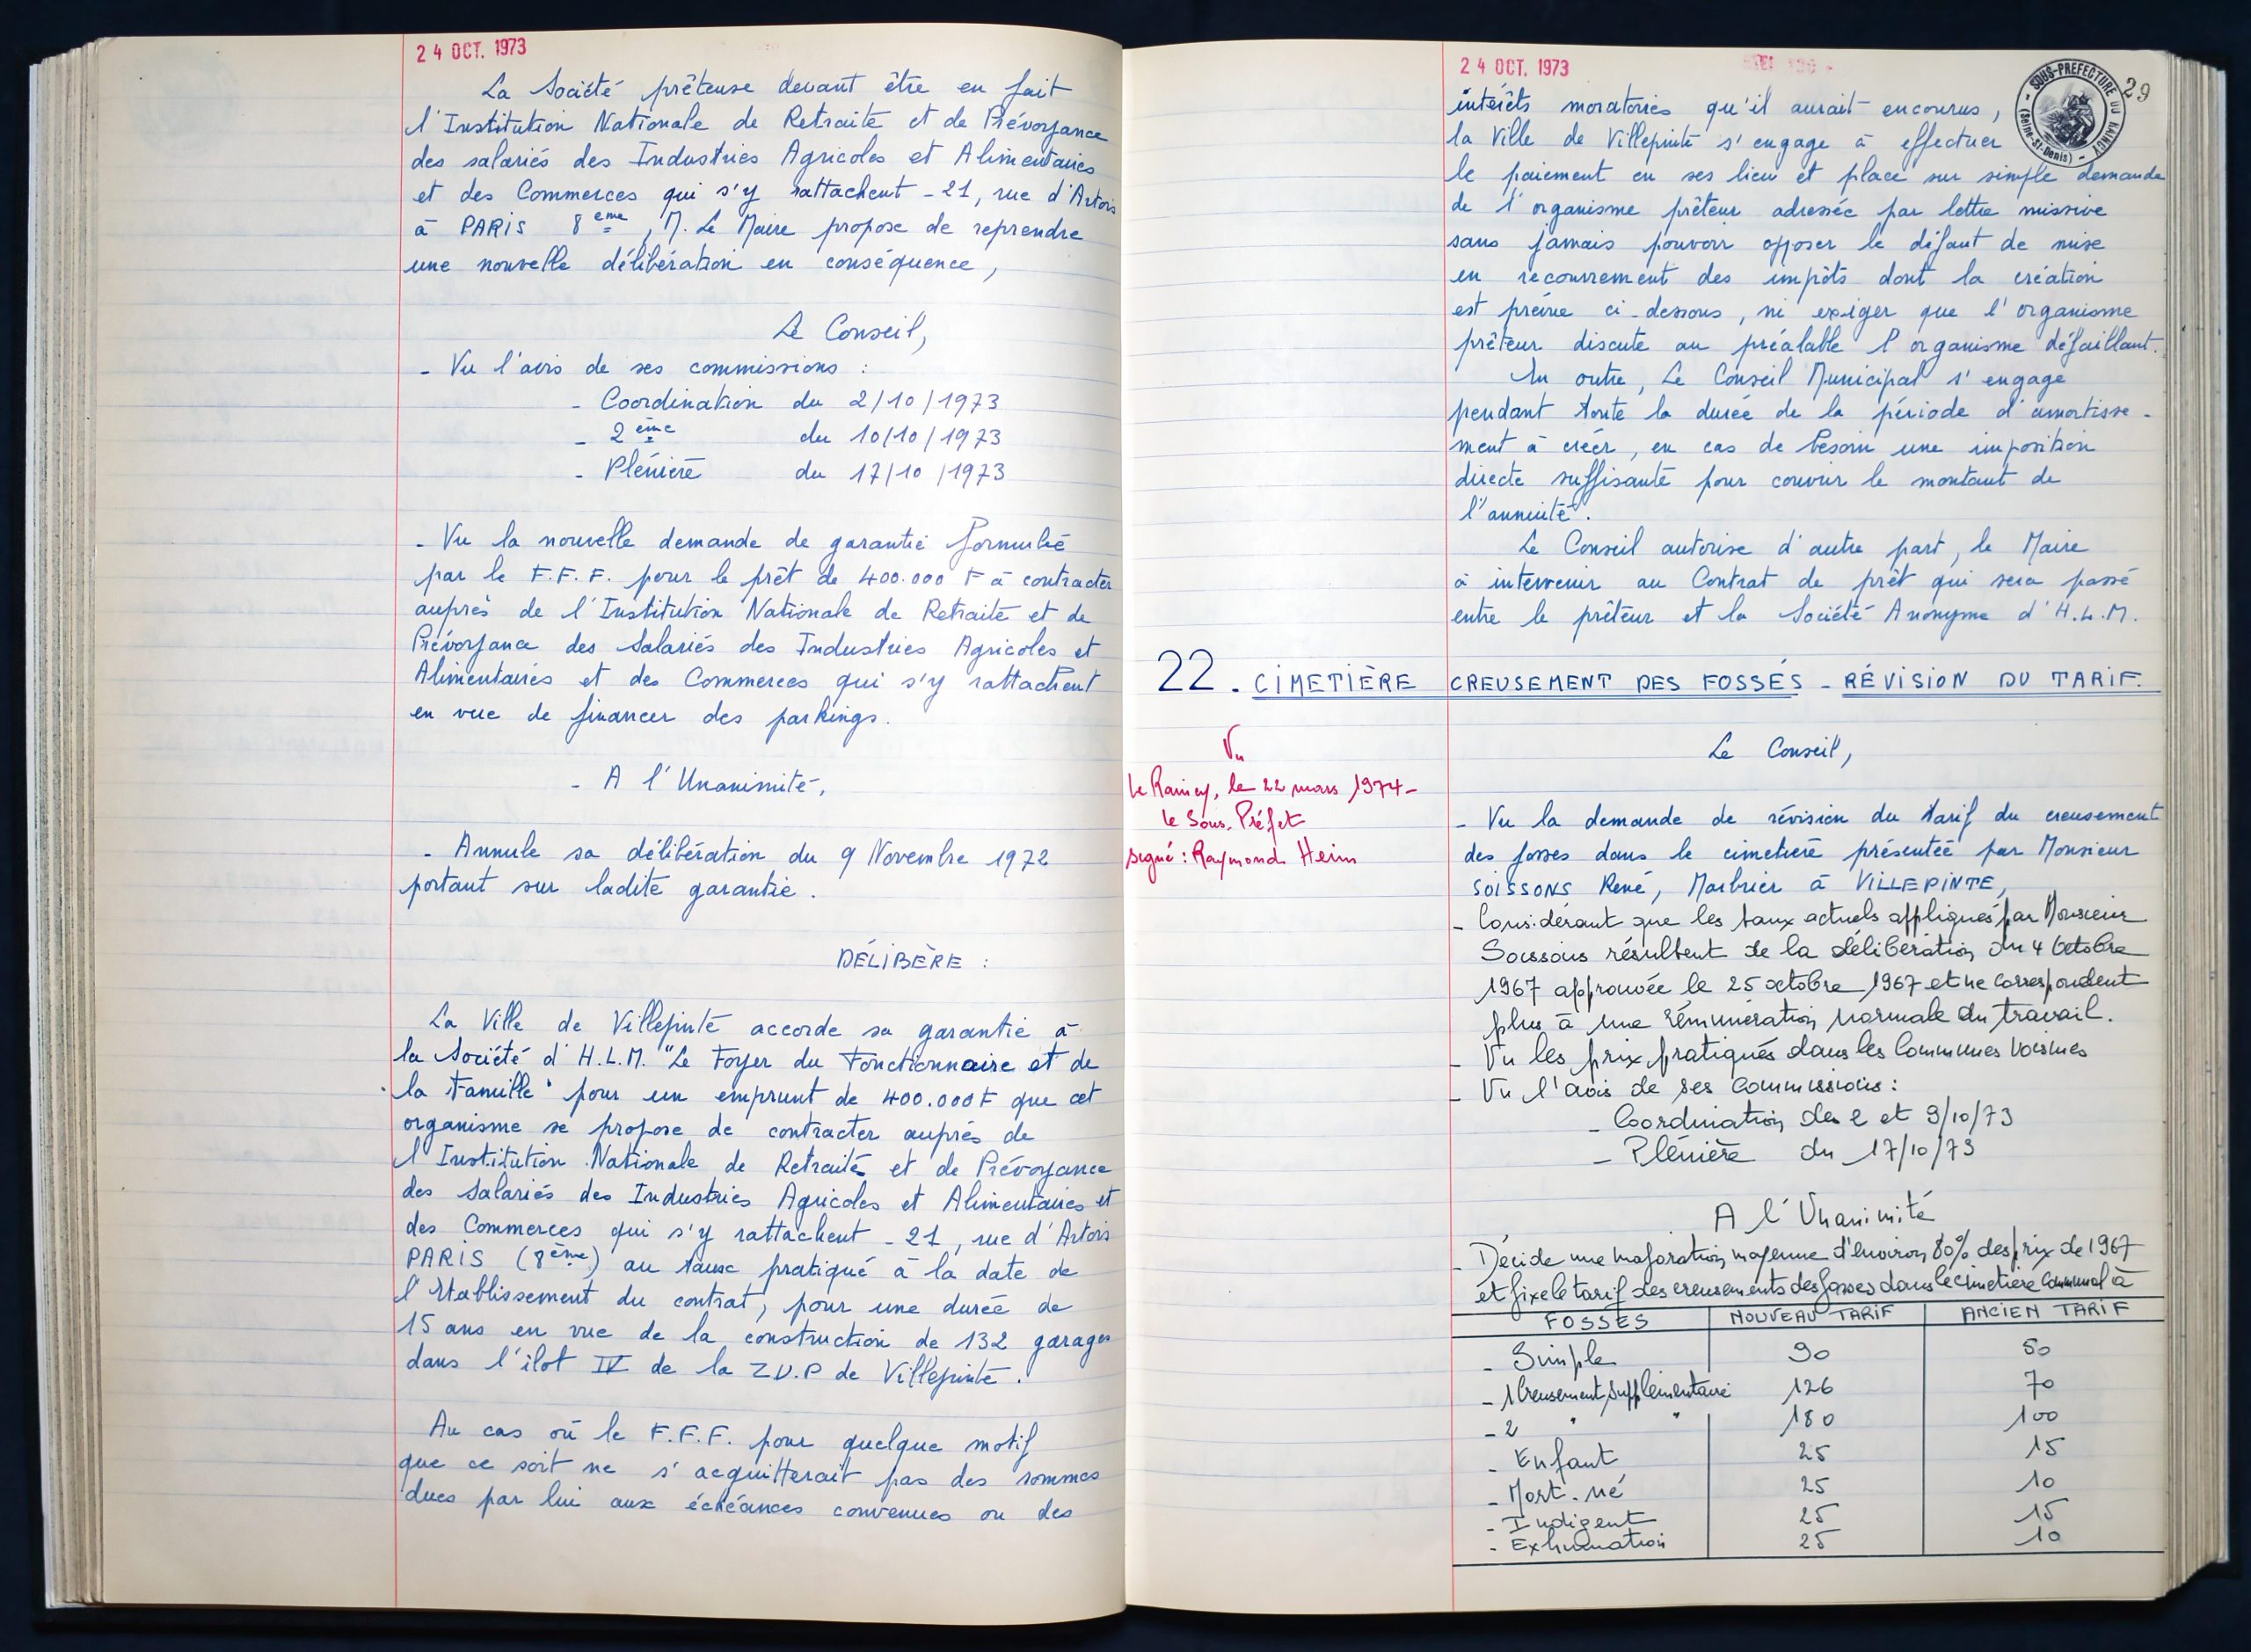 24 OCT. 1973
La Société prêteuse devant être en fait
l'Institution Nationale de Retraite et de Prévoyance
des salariés des Industries Agricoles et Alimentaires
et des Commerces qui s'y rattachent - 21, rue d'Artois
à PARIS 8 ème, M. Le Maire propose de reprendre
une nouvelle délibération en conséquence,
Le Conseil,
- Vu l'avis de ses commissions :
- Coordination du 2/10/1973
- 2 ème du 10/10/1973
- Plénière du 17/10/1973
- Vu la nouvelle demande de garantie formulée
par le F.F.F. pour le prêt de 400.000 F à contracter
auprès de l'Institution Nationale de Retraite et de
Prévoyance des Salariés des Industries Agricoles et
Alimentaires et des Commerces qui s'y rattachent
en vue de financer des parkings.
- A l'Unanimité,
- Annule sa délibération du 9 Novembre 1972
portant sur ladite garantie.
DÉLIBÈRE :
La Ville de Villepinte accorde sa garantie à
la Société d'H.L.M. "Le Foyer du Fonctionnaire et de
la Famille" pour un emprunt de 400.000 F que cet
organisme se propose de contracter auprès de
l'Institution Nationale de Retraite et de Prévoyance
des Salariés des Industries Agricoles et Alimentaires et
des Commerces qui s'y rattachent - 21, rue d'Artois
PARIS (8ème) au taux pratiqué à la date de
l'Etablissement du contrat, pour une durée de
15 ans en vue de la construction de 132 garages
dans l'ilot IV de la Z.U.P de Villepinte.
Au cas où le F.F.F. pour quelque motif
que ce soit ne s'acquitterait pas des sommes
dues par lui aux échéances convenues ou des
24 OCT. 1973
29
SOUS-PREFECTURE DU RAINCY
(Seine-St-Denis)
intérêts moratoires qu'il aurait encourus,
la Ville de Villepinte s'engage à effectuer
le paiement en ses lieu et place sur simple demande
de l'organisme prêteur adressée par lettre missive
sans jamais pouvoir opposer le défaut de mise
en recouvrement des impôts dont la création
est prévue ci-dessous, ni exiger que l'organisme
prêteur discute au préalable l'organisme défaillant.
En outre, Le Conseil Municipal s'engage
pendant toute la durée de la période d'amortisse-
ment à créer, en cas de besoin une imposition
directe suffisante pour couvrir le montant de
l'annuité.
Le Conseil autorise d'autre part, le Maire
à intervenir au Contrat de prêt qui sera passé
entre le prêteur et la Société Anonyme d'H.L.M.
22. CIMETIÈRE CREUSEMENT DES FOSSÉS - RÉVISION DU TARIF.
Vu
Le Raincy, le 22 mars 1974 -
le Sous-Préfet
signé : Raymond Heim
Le Conseil,
- Vu la demande de révision du tarif du creusement
des fosses dans le cimetière présentée par Monsieur
SOISSONS René, Marbrier à VILLEPINTE,
- Considérant que les taux actuels appliqués par Monsieur
Soissons résultent de la délibération du 4 Octobre
1967 approuvée le 25 octobre 1967 et ne correspondent
plus à une rémunération normale du travail.
- Vu les prix pratiqués dans les Communes voisines
- Vu l'avis de ses Commissions :
- Coordination des 2 et 9/10/73
- Plénière du 17/10/73
A l'Unanimité
- Décide une majoration moyenne d'environ 80% des prix de 1967
et fixe le tarif des creusements des fosses dans le cimetière Communal à
FOSSES NOUVEAU TARIF ANCIEN TARIF
- Simple 90 50
- 1 Creusement supplémentaire 126 70
- 2 " " 180 100
- Enfant 25 15
- Mort-né 25 10
- Indigent 25 15
- Exhumation 25 10